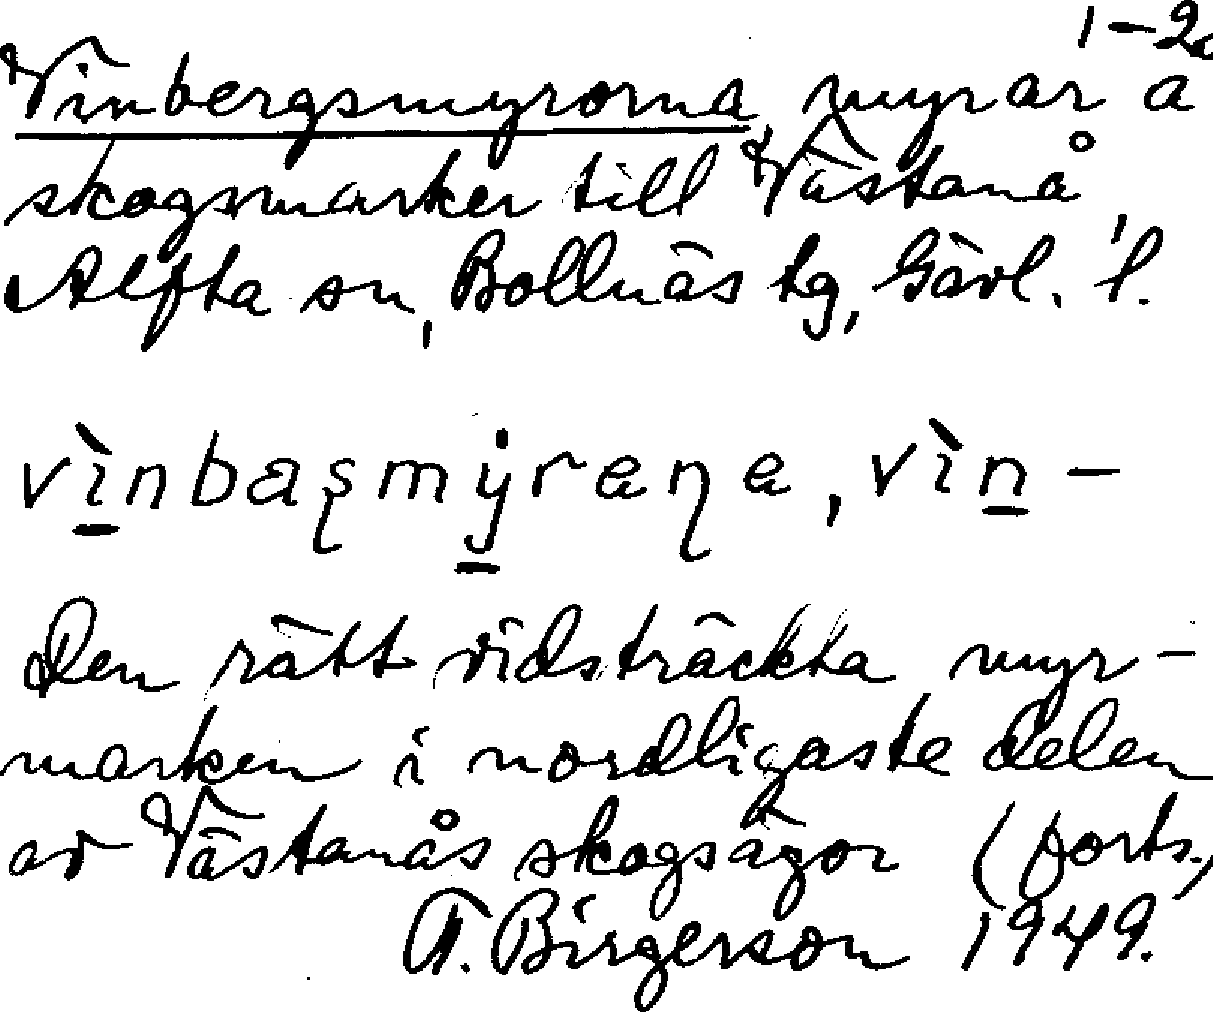 1-2a
Vinbergsmyrorna, myrar å
skogsmarker till Västanå,
Alfta sn, Bollnäs tg, Gävl. l.
vìnbaʂmẏrɐɳɐ, vìn-
Den rätt vidsträckta myr-
marken i nordligaste delen
av Västanås skogsägor (forts.)
T. Birgerson 1949.